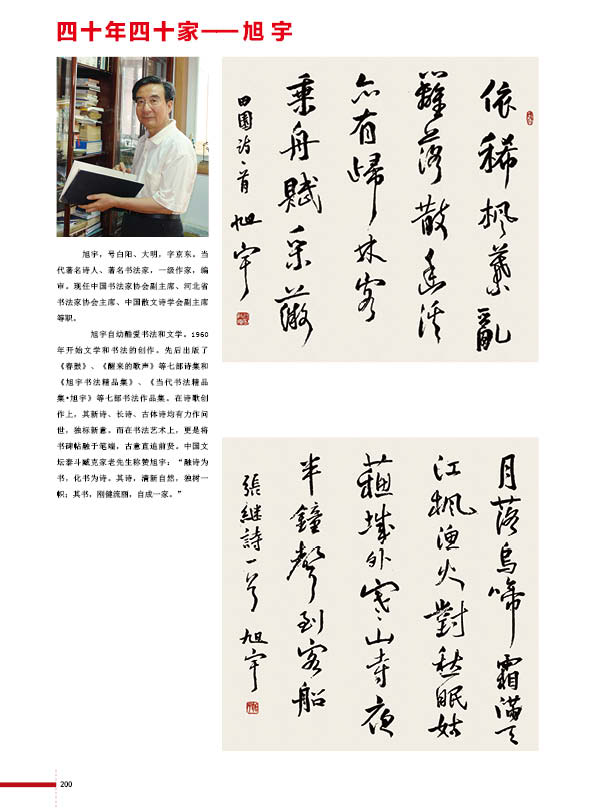 四十年四十家——旭宇
旭宇，号白阳、大明，字京东。当
代著名诗人、著名书法家，一级作家，编
审。现任中国书法家协会副主席、河北省
书法家协会主席、中国散文诗学会副主席
等职。
旭宇自动酷爱书法和文学。1960
年开始文学和书法的创作。先后出版了
《春鼓》、《醒来的歌声》等七部诗集和
《旭宇书法精品集》、《当代书法精品
集•旭宇》等七部书法作品集。在诗歌创
作上，其新诗、长诗、古体诗均有力作问
世，独标新意。而在书法艺术上，更是将
书碑帖融于笔端，古意直追前贤。中国文
坛泰斗臧克家老先生称赞旭宇：“融诗为
书，化书为诗。其诗，清新自然，独树一
帜；其书，刚健流丽，自成一家。”
依稀枫葉亂
籬落散溪
亦有歸林客
乘舟賦采薇
田園詩一首 旭宇
月落烏啼霜滿天
江楓渔火對愁眠姑
蘇城外寒山寺夜
半鐘聲到客船
張继詩一首 旭宇
200